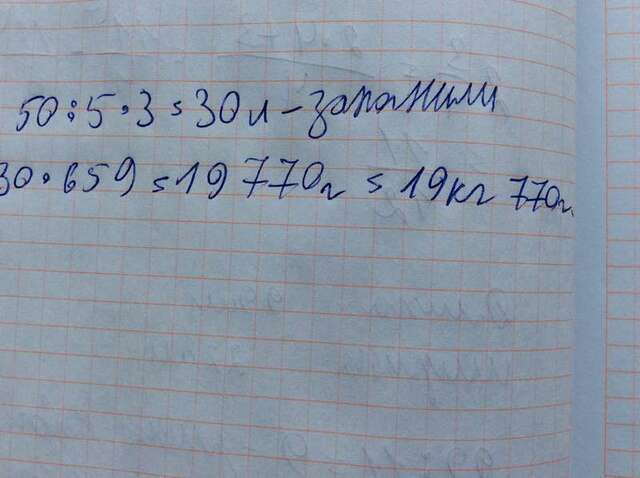 50:5·3=30л-запалнили
30·659=19770г=19кг 770г.